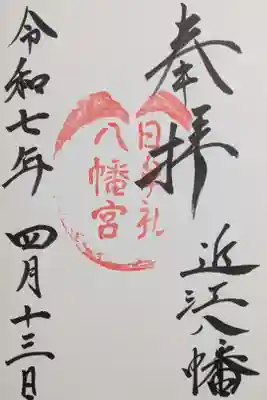 奉拝
近江八幡
日牟礼
八幡宮
令和七年
四月十三日